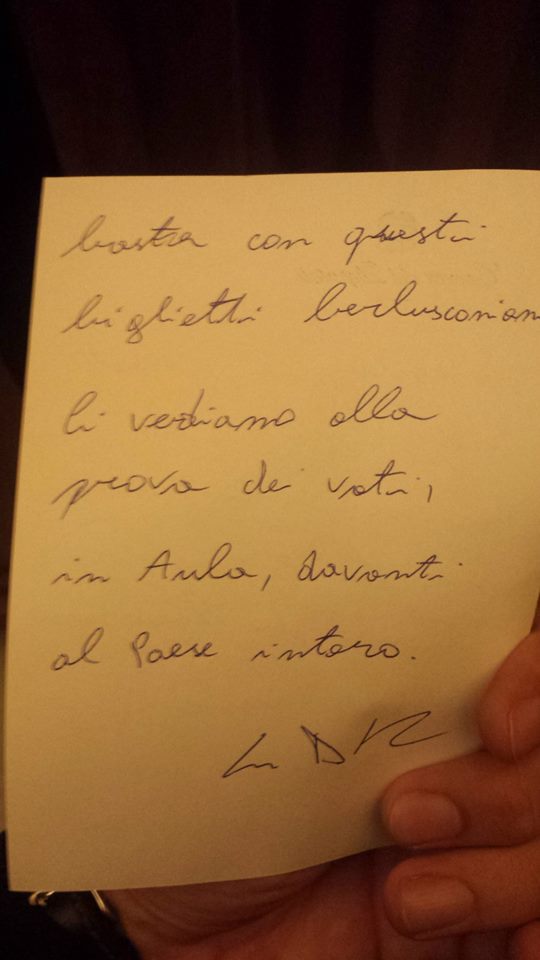 basta con questi
biglietti berlusconian
li vediamo alla
prova dei voti,
in Aula, davanti
al Paese intero.